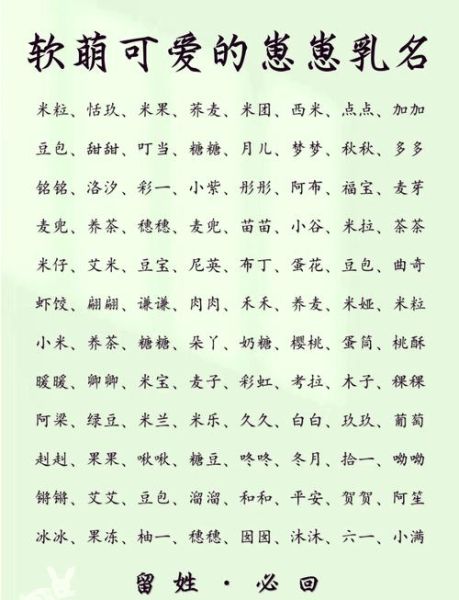 软萌可爱的崽崽乳名
米粒、恬玖、米果、荞麦、米团、西米、点点、加加
豆包、甜甜、叮当、糖糖、月儿、梦梦、秋秋、多多
铭铭、洛汐、彩一、小紫、彤彤、阿布、福宝、麦芽
麦兜、养茶、穗穗、麦兜、苗苗、小谷、米拉、茶茶
米仔、艾米、豆宝、尼英、布丁、蛋花、豆包、曲奇
虾饺、翩翩、谦谦、肉肉、禾禾、养麦、米娅、米粒
小米、养茶、糖糖、朵丫、奶糖、樱桃、蛋筒、桃酥
暖暖、卿卿、米宝、麦子、彩虹、考拉、木子、稞稞
阿梁、绿豆、米兰、米乐、久久、白白、玖玖、葡萄
赳赳、果果、啾啾、糖豆、咚咚、冬月、拾一、呦呦
锵锵、艾艾、豆包、溜溜、和和、平安、贺贺、阿笙
冰冰、果冻、柚一、穗穗、囡囡、沐沐、六一、小满
留姓·必回